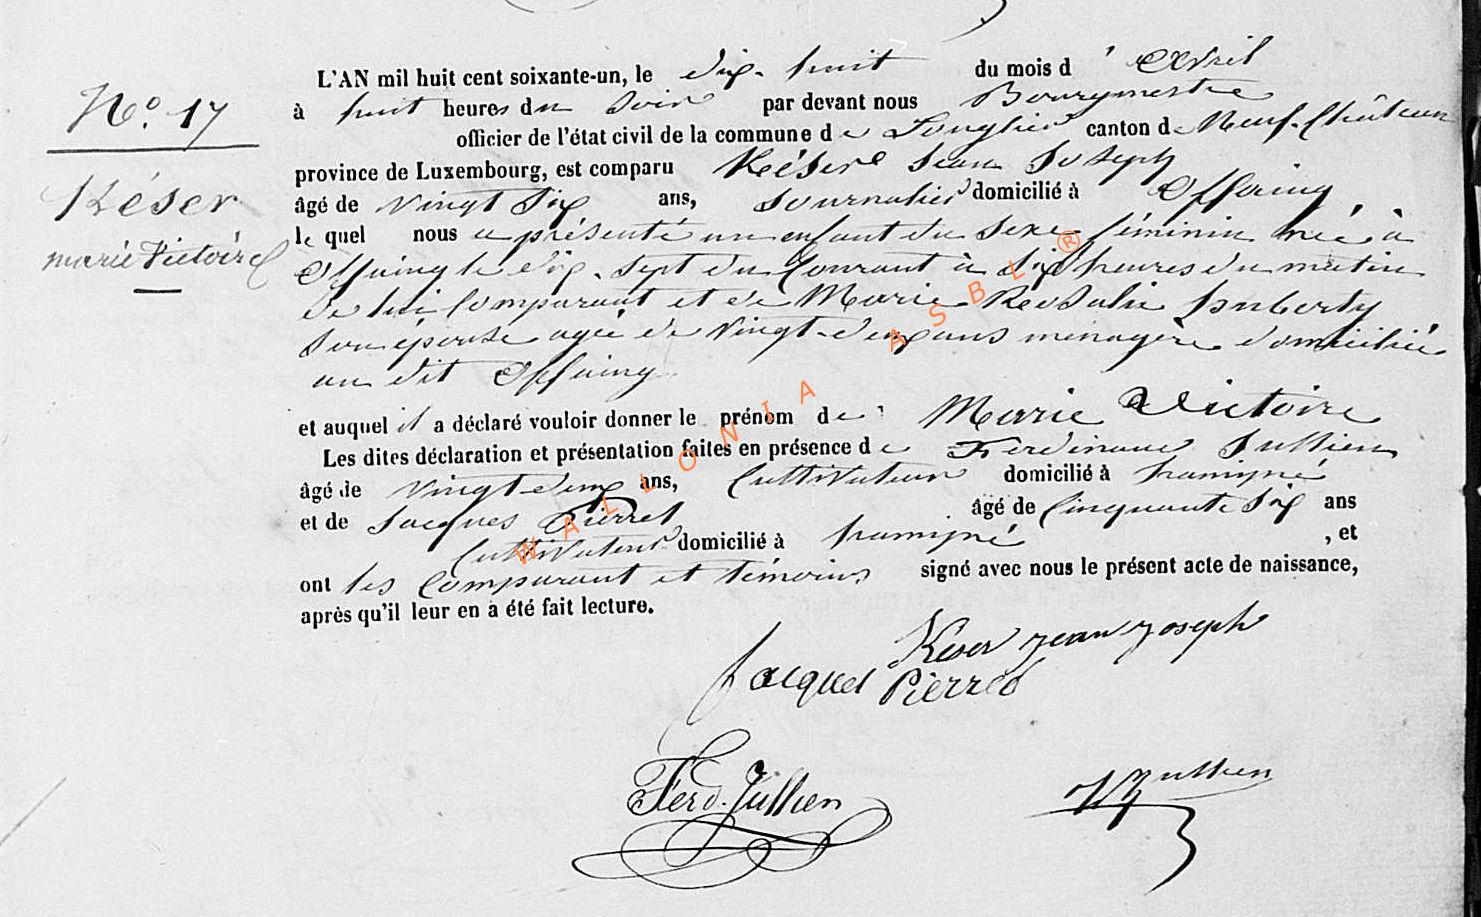 N.º 17
Késer
marie Victoire
L'AN mil huit cent soixante-un, le dix-huit du mois d'Avril
à huit heures du soir par devant nous Bourgmestre
officier de l'état civil de la commune de Longlier canton de Neuf-Château
province de Luxembourg, est comparu Késer Jean Joseph
âgé de vingt six ans, Journalier domicilié à Offaing,
le quel nous a présenté un enfant du sexe féminin née à
Offaing le dix-sept du Courant à six heures du matin
de lui Comparant et de Marie Rosalie Huberty
son épouse agée de vingt-deux ans ménagère domiciliée
au dit Offaing
et auquel il a déclaré vouloir donner le prénom de Marie Victoire
Les dites déclaration et présentation faites en présence de Ferdinand Jullien
âgé de vingt deux ans, Cultivateur domicilié à
et de Jacques Pierret âgé de Cinquante six ans
Cultivateur domicilié à , et
ont les Comparant et témoins signé avec nous le présent acte de naissance,
après qu'il leur en a été fait lecture.
Keser jean joseph
Jacques Pierret
Ferd. Jullien
Jullien
WALLONIA ASBL ®